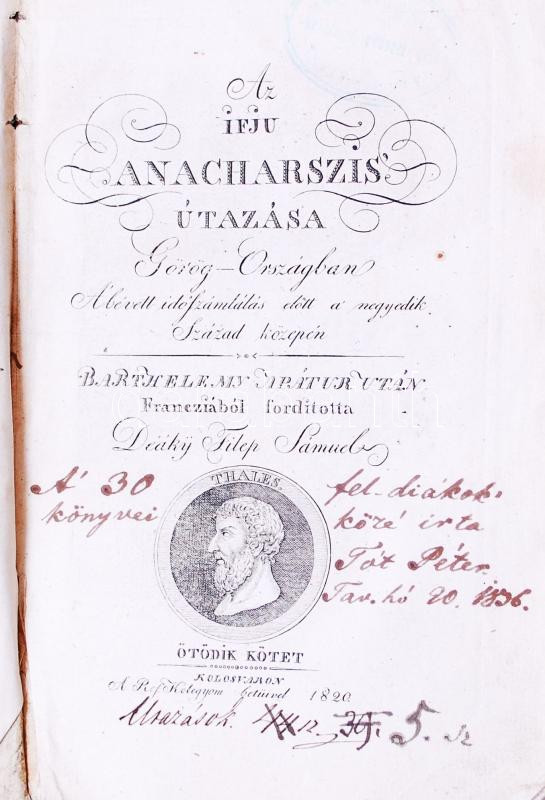 Az
IFJU
ANACHARSZIS'
ÚTAZÁSA
Görög-Országban
A' bévett időszámlálás előtt a' negyedik
Század közepén
BARTHELEMY APÁTUR UTÁN
Francziából fordította
Déáky Filep Sámuel
A' 30 fel-diákok'
könyvei közé irta
Tót Péter
Tav. hó 20. 1836.
THALES
ÖTÖDIK KÖTET
KOLOSVARON
A Ref. Kolegyom betüivel 1820
Utazások. sz. 5. sz